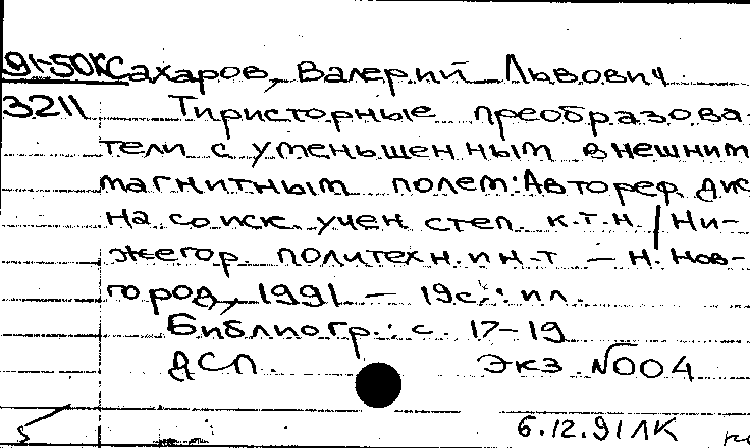 91-50К Сахаров, Валерий Львович
3211 Тиристорные преобразова-
тели с уменьшенным внешним
магнитным полем: Автореф. дис
на соиск. учен. степ. к.т.н. / Ни-
жегор. политехн. ин-т. – Н. Нов-
город, 1991. – 19с.: ил.
Библиогр.: с. 17-19
ДСП. Экз. №004
6.12.91 ЛК